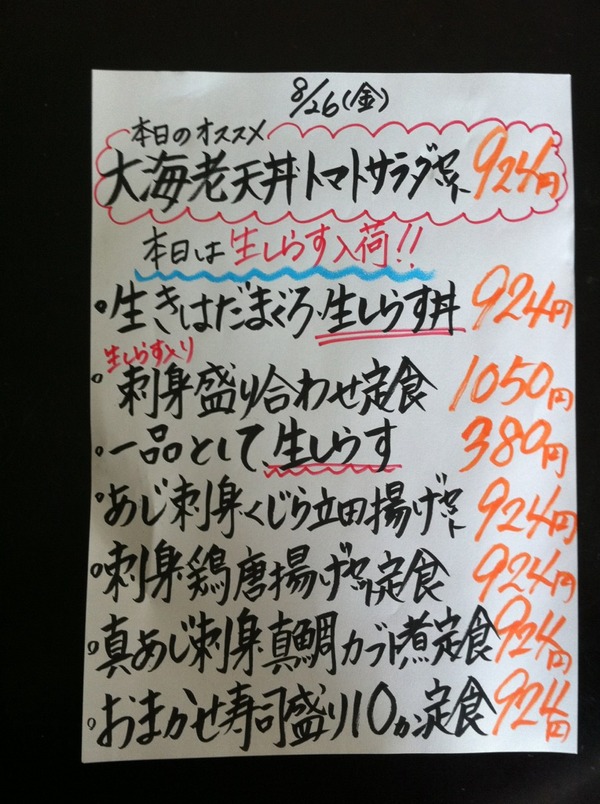 8/26(金)
本日のオススメ
大海老天丼トマトサラダセット 924円
本日は生しらす入荷!!
生きはだまぐろ・生しらす丼 924円
生しらす入り
刺身盛り合わせ定食 1050円
一品として、生しらす 380円
あじ刺身くじら立田揚げセット 924円
刺身鶏唐揚げセット定食 924円
真あじ刺身真鯛カブト煮定食 924円
おまかせ寿司盛り10カン定食 924円